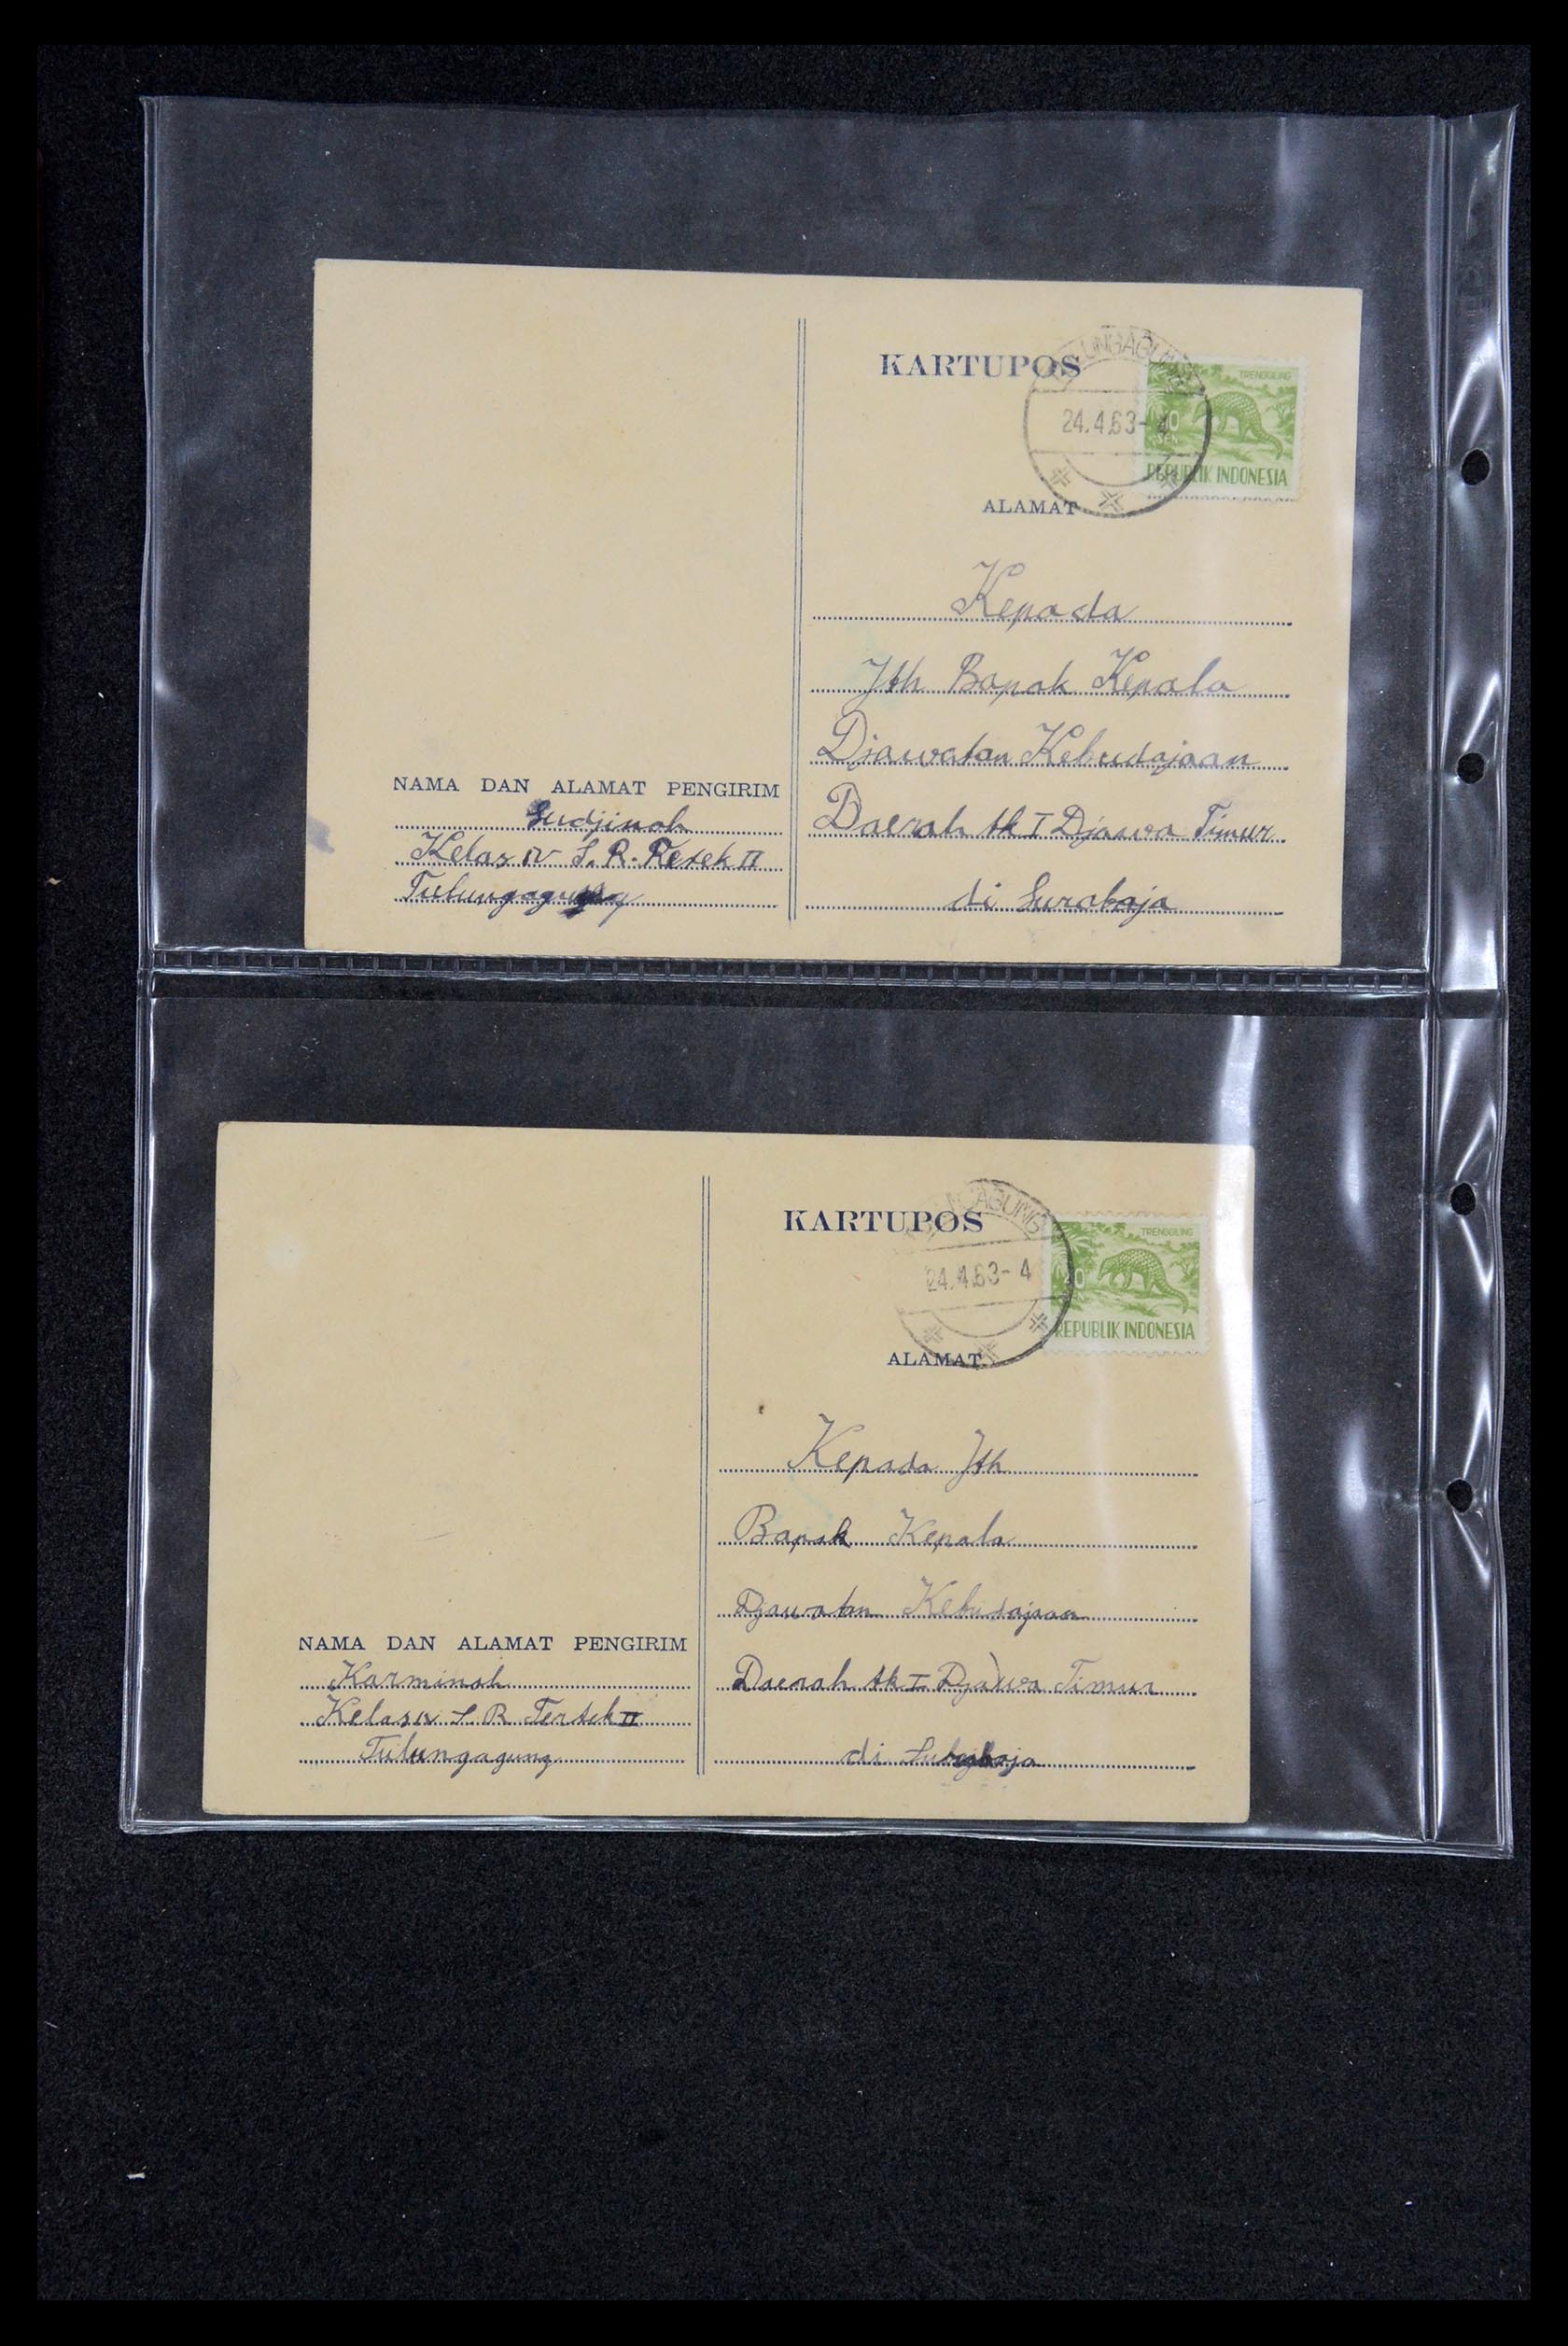 KARTUPOS
TULUNGAGUNG
24.4.63-4
TRENGGILING
REPUBLIK INDONESIA
ALAMAT
Kepada
Jth Bapak Kepala
Djawatan Kebudajaan
Daerah tk I Djawa Timur
di Surabaja
NAMA DAN ALAMAT PENGIRIM
Sudjinah
Kelas IV S. R. Retek II
Tulungagung
KARTUPOS
TULUNGAGUNG
24.4.63-4
TRENGGILING
REPUBLIK INDONESIA
ALAMAT
Kepada Jth
Bapak Kepala
Djawatan Kebudajaan
Daerah tk I Djawa Timur
di
NAMA DAN ALAMAT PENGIRIM
Karminah
Kelas IV S. R Tertek II
Tulungagung